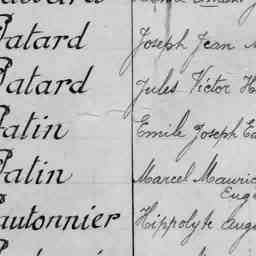 Patard Joseph Jean
Patard Jules Victor H
Patin Emile Joseph E
Patin Marcel Mauric
Eug
Pautonnier Hippolyte Aug